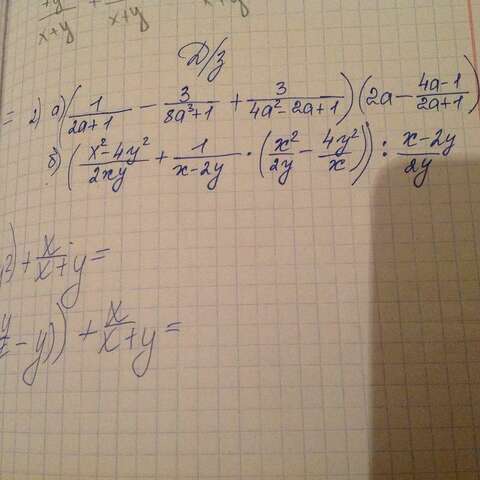 x+y x+y
Д/з
= 2) а) (1/(2a+1) - 3/(8a³+1) + 3/(4a²-2a+1)) (2a - (4a-1)/(2a+1))
б) ((x²-4y²)/(2xy) + 1/(x-2y) · (x²/(2y) - 4y²/x)) : (x-2y)/(2y)
²) + x/(x+y) =
- y)) + x/(x+y) =